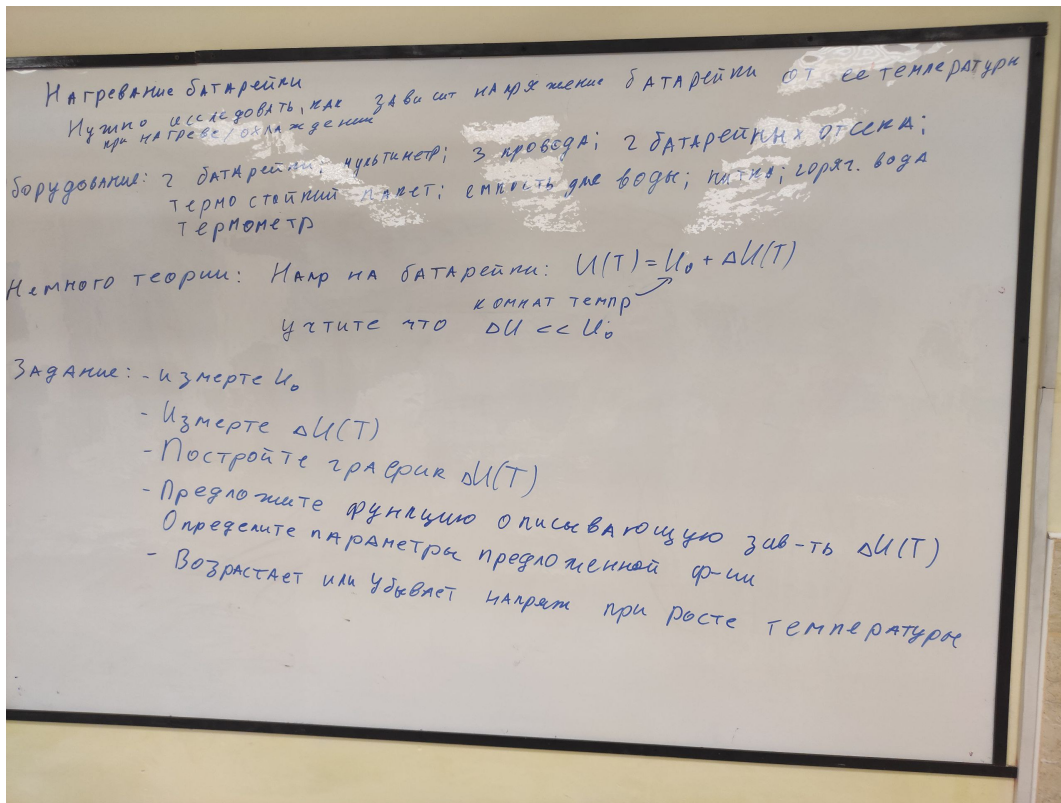 Нагревание батарейки
Нужно исследовать, как зависит напряжение батарейки от ее температуры
при нагреве/охлаждении
борудование: 2 батарейки; мультиметр; 3 провода; 2 батарейных отсека;
термостойкий пакет; емкость для воды; горяч. вода
термометр
Немного теории: Напр на батарейки: U(T) = U₀ + ΔU(T)
комнат темпр
учтите что ΔU << U₀
Задание: - измерте U₀
- Измерте ΔU(T)
- Постройте график ΔU(T)
- Предложите функцию описывающую зав-ть ΔU(T)
Определите параметры предложенной ф-ии
- Возрастает или убывает напряж при росте температуры